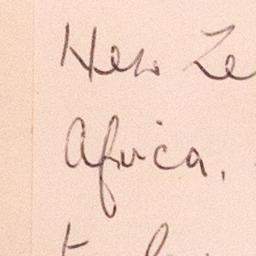 New Ze
Africa.